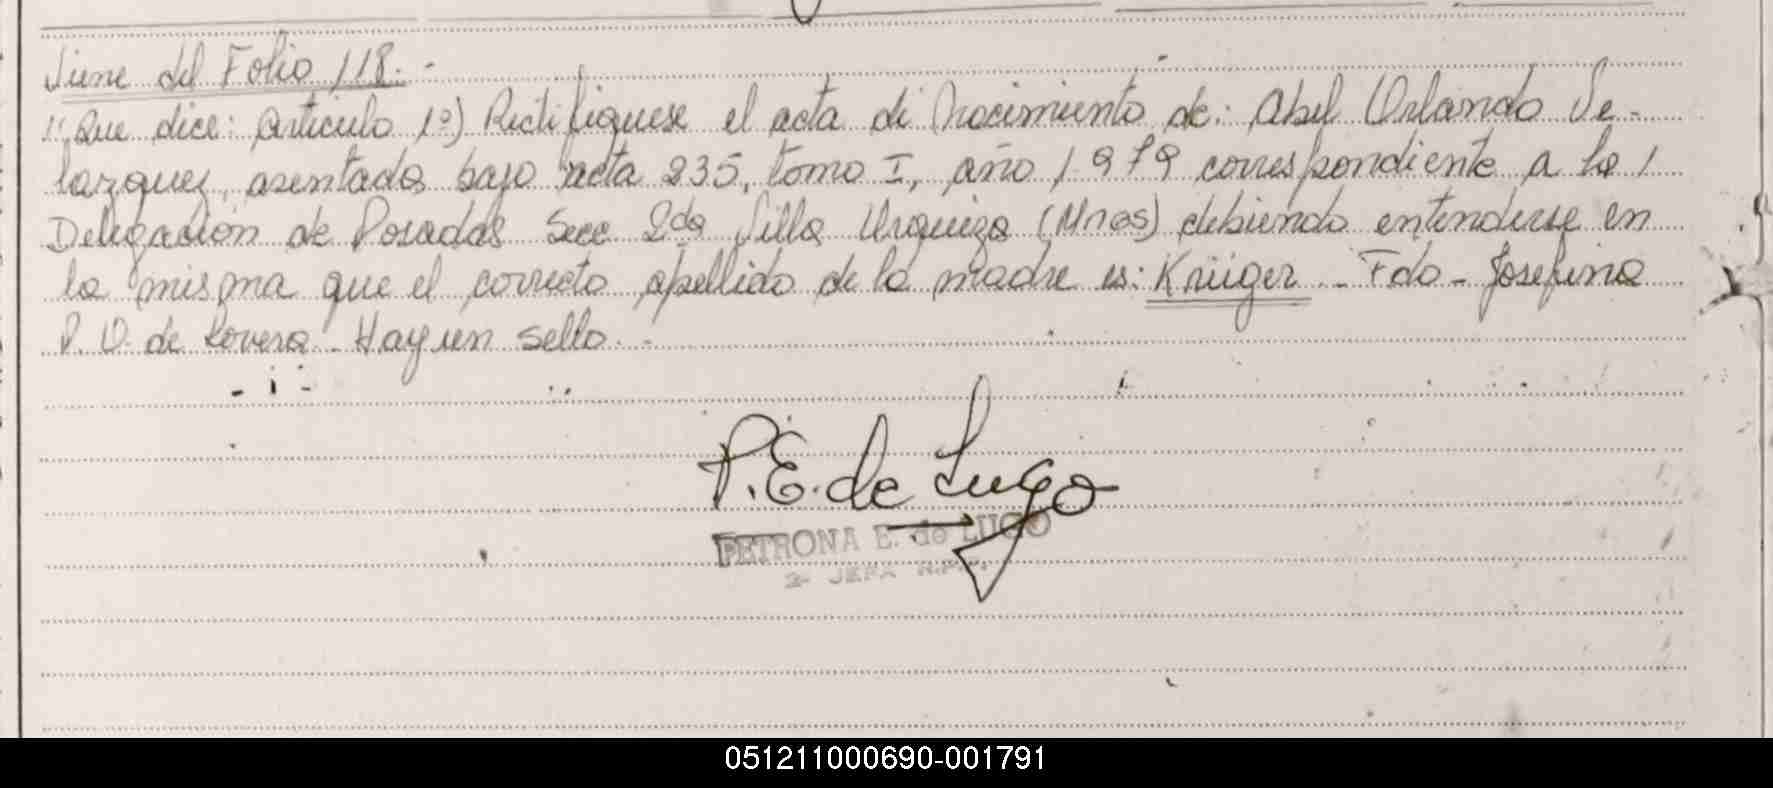 Viene del Folio 118.-
"Que dice: Artículo 1º) Rectifiquese el acta de Nacimiento de: Abel Orlando Ve-
lazquez, asentada bajo acta 235, tomo I, año 1.979 correspondiente a la
Delegación de Posadas Secc 2da Villa Urquiza (Mnes) debiendo entenderse en
la misma que el correcto apellido de la madre es: Krüiger - Fdo - Josefina
P. O. de Lovera - Hay un sello. -
P.E. de Lugo
PETRONA E. de LUGO
2- JEFA R.P.P.
051211000690-001791